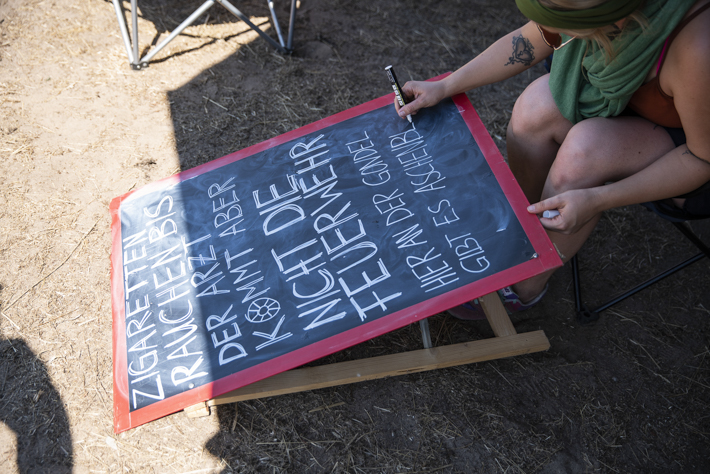 ZIGARETTEN
RAUCHEN BIS
DER ARZT
KOMMT ABER
NICHT DIE
FEUERWEHR
HIER AN DER GONDEL
GIBT ES ASCHENB